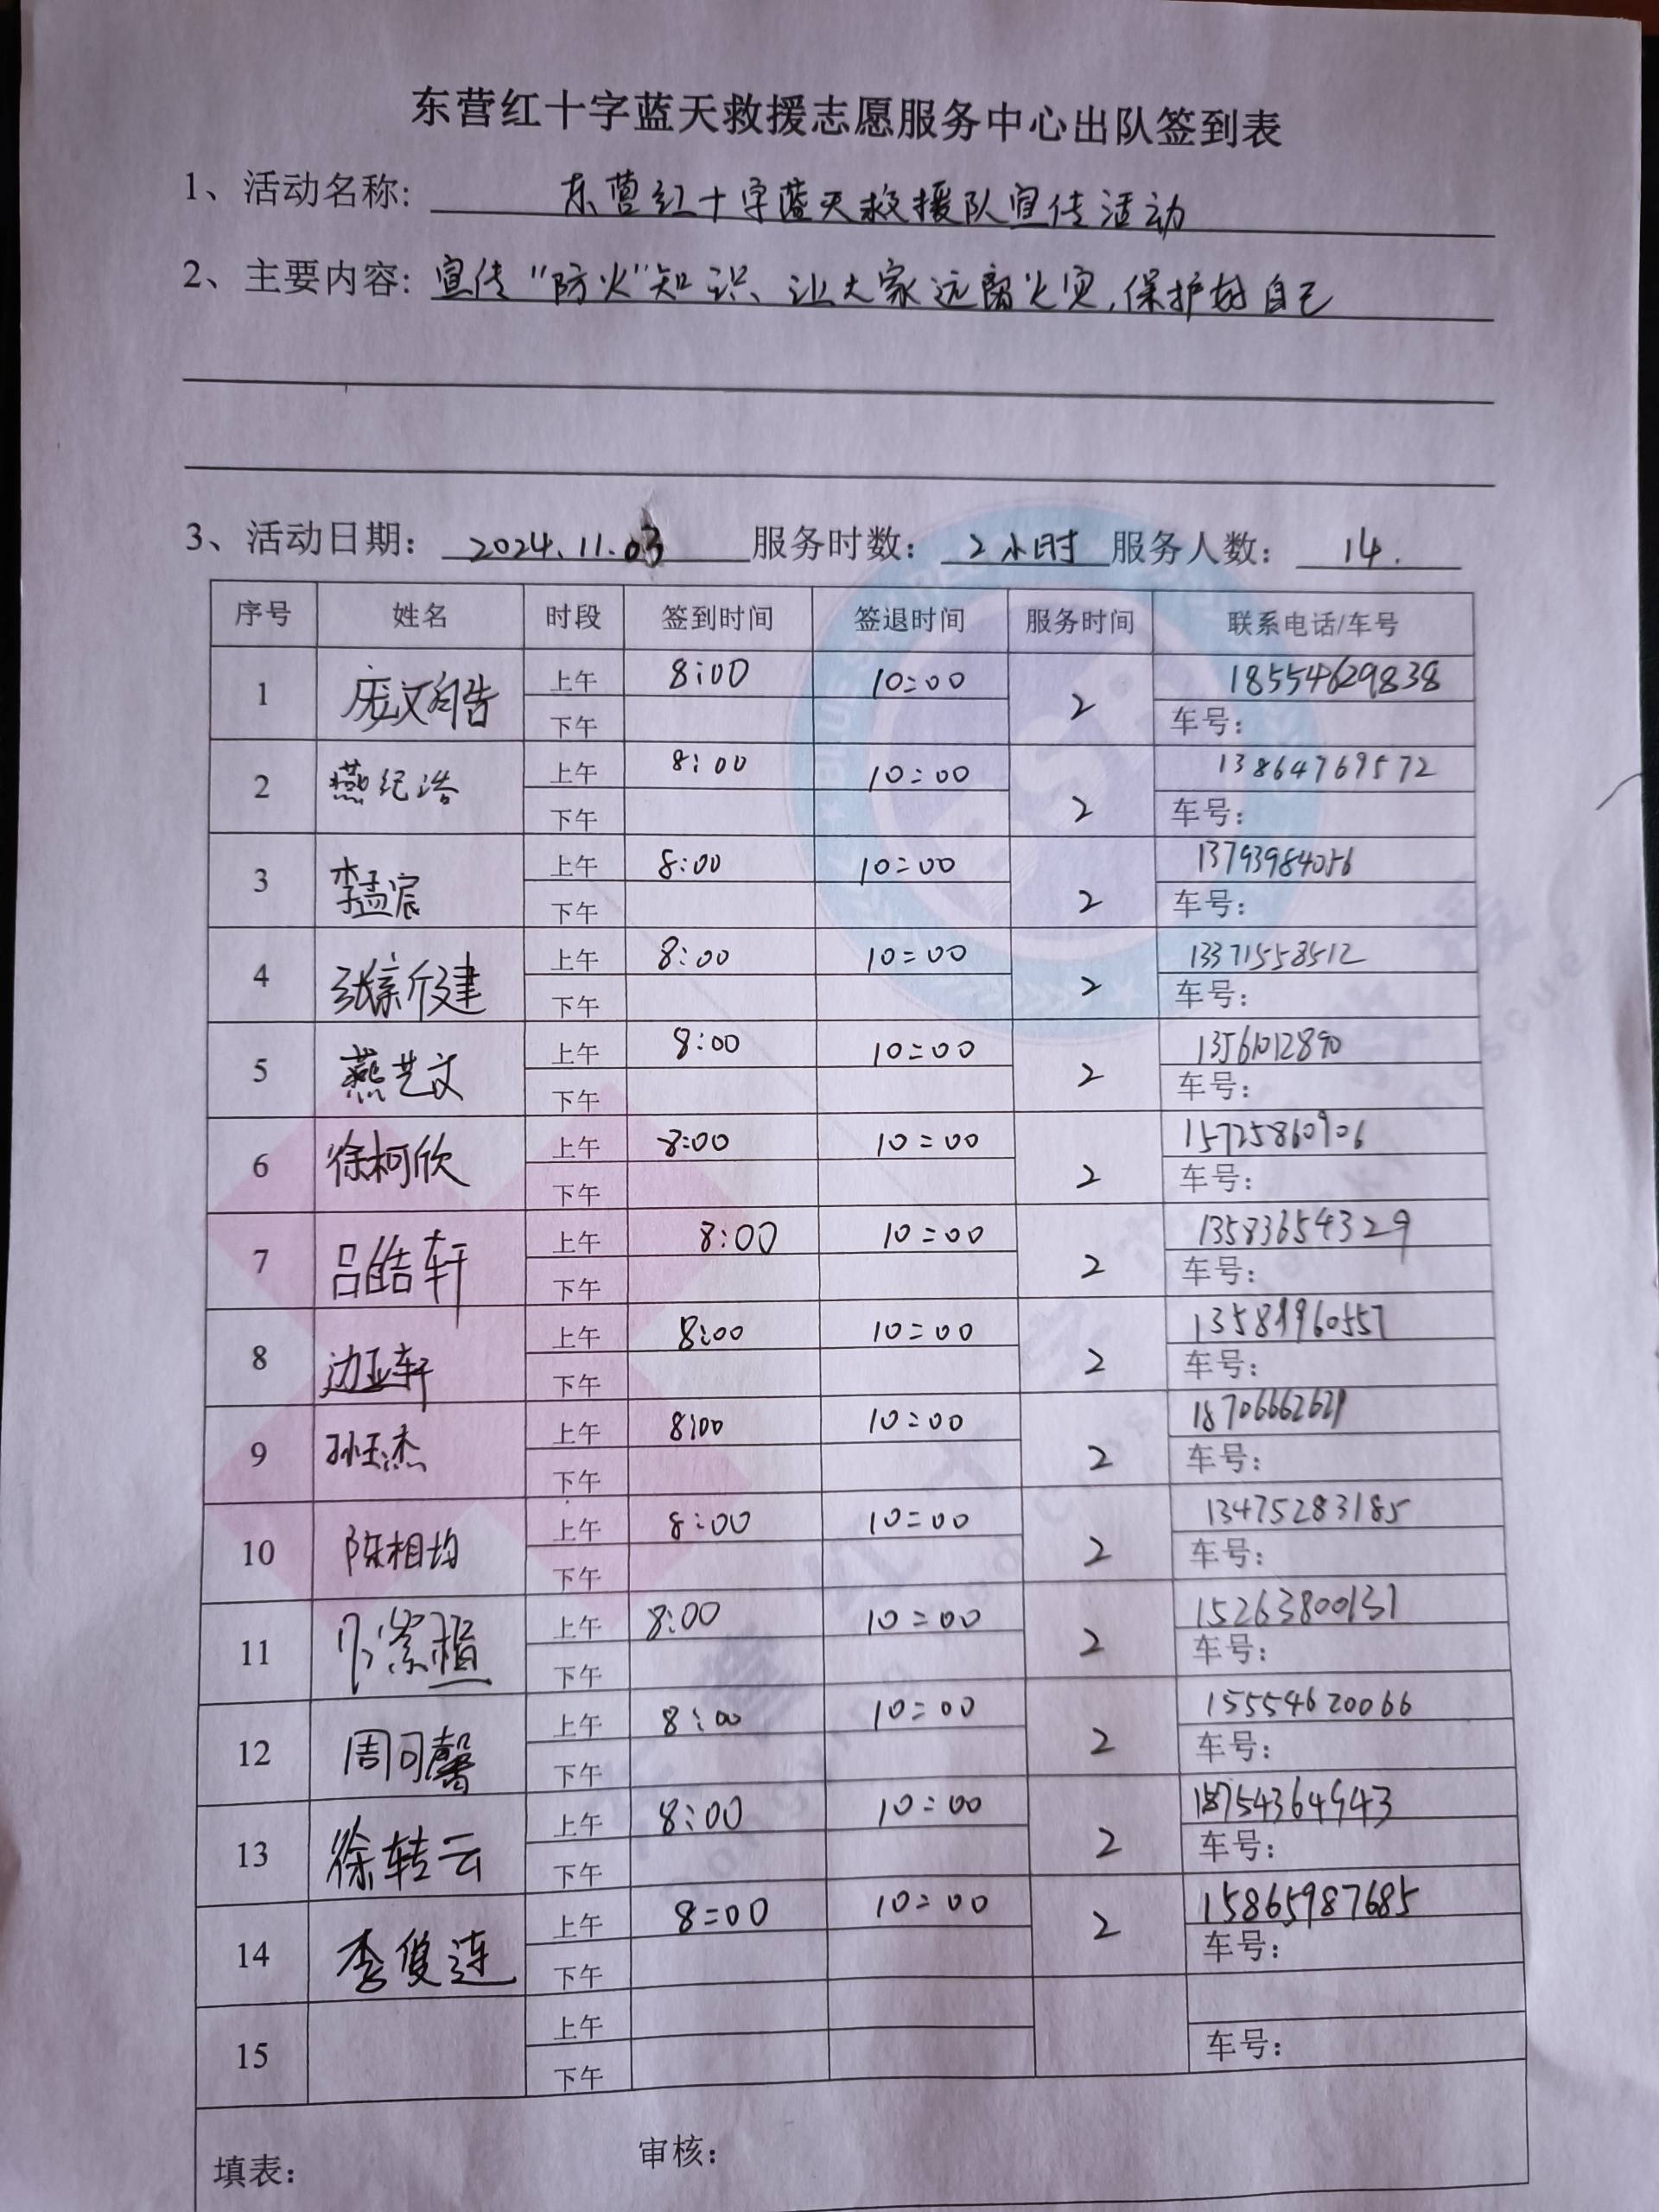 东营红十字蓝天救援志愿服务中心出队签到表
1、活动名称: 东营红十字蓝天救援队宣传活动
2、主要内容: 宣传“防火”知识、让大家远离火灾,保护好自己
3、活动日期: 2024.11.03 服务时数: 2小时 服务人数: 14.
序号 姓名 时段 签到时间 签退时间 服务时间 联系电话/车号
1 庞文皓 上午 8:00 10:00 2 18554629838
下午 车号:
2 燕纪浩 上午 8:00 10:00 2 13864769572
下午 车号:
3 李孟宸 上午 8:00 10:00 2 13793984056
下午 车号:
4 张新建 上午 8:00 10:00 2 13371558512
下午 车号:
5 燕艺文 上午 8:00 10:00 2 13561012890
下午 车号:
6 徐柯欣 上午 8:00 10:00 2 15725860906
下午 车号:
7 吕皓轩 上午 8:00 10:00 2 13583654329
下午 车号:
8 边亚轩 上午 8:00 10:00 2 13589960557
下午 车号:
9 孙玉杰 上午 8:00 10:00 2 18706662629
下午 车号:
10 陈相均 上午 8:00 10:00 2 13475283185
下午 车号:
11 上午 8:00 10:00 2 15263800131
下午 车号:
12 周可馨 上午 8:00 10:00 2 15554620066
下午 车号:
13 徐转云 上午 8:00 10:00 2 18754364943
下午 车号:
14 李俊连 上午 8:00 10:00 2 15865987685
下午 车号:
15 上午
下午 车号:
填表: 审核: